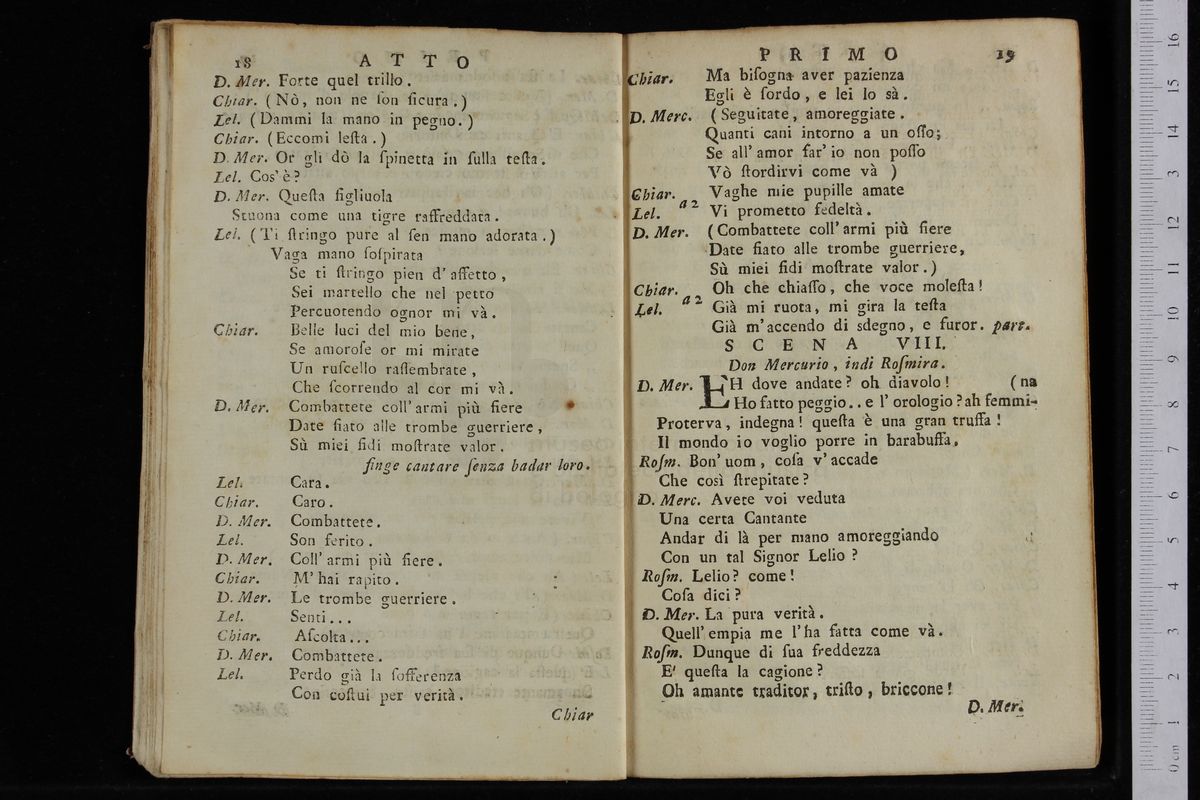 18 ATTO
D. Mer. Forte quel trillo.
Chiar. (Nò, non ne ſon ſicura.)
Lel. (Dammi la mano in pegno.)
Chiar. (Eccomi leſta.)
D. Mer. Or gli dò la ſpinetta in ſulla teſta.
Lel. Cos' è?
D. Mer. Queſta figliuola
Stuona come una tigre raffreddata.
Lel. (Ti ſtringo pure al ſen mano adorata.)
Vaga mano ſoſpirata
Se ti ſtringo pien d' affetto,
Sei martello che nel petto
Percuotendo ognor mi và.
Chiar. Belle luci del mio bene,
Se amoroſe or mi mirate
Un ruſcello raſſembrate,
Che ſcorrendo al cor mi và.
D. Mer. Combattete coll' armi più fiere
Date fiato alle trombe guerriere,
Sù miei fidi moſtrate valor.
finge cantare ſenza badar loro.
Lel. Cara.
Chiar. Caro.
D. Mer. Combattete.
Lel. Son ferito.
D. Mer. Coll' armi più fiere.
Chiar. M' hai rapito.
D. Mer. Le trombe guerriere.
Lel. Senti...
Chiar. Aſcolta...
D. Mer. Combattete.
Lel. Perdo già la ſofferenza
Con coſtui per verità.
Chiar
PRIMO 19
Chiar. Ma biſogna aver pazienza
Egli è ſordo, e lei lo sà.
D. Merc. (Seguitate, amoreggiate.
Quanti cani intorno a un oſſo;
Se all' amor far' io non poſſo
Vò ſtordirvi come và )
Chiar. a 2 Vaghe mie pupille amate
Lel. Vi prometto fedeltà.
D. Mer. (Combattete coll' armi più fiere
Date fiato alle trombe guerriere,
Sù miei fidi moſtrate valor.)
Chiar. a 2 Oh che chiaſſo, che voce moleſta!
Lel. Già mi ruota, mi gira la teſta
Già m' accendo di sdegno, e furor. part.
SCENA VIII.
Don Mercurio, indi Roſmira.
D. Mer. EH dove andate? oh diavolo! (na
Ho fatto peggio.. e l' orologio? ah femmi-
Proterva, indegna! queſta è una gran truffa!
Il mondo io voglio porre in barabuffa.
Roſm. Bon' uom, coſa v' accade
Che così ſtrepitate?
D. Merc. Avete voi veduta
Una certa Cantante
Andar di là per mano amoreggiando
Con un tal Signor Lelio?
Roſm. Lelio? come!
Coſa dici?
D. Mer. La pura verità.
Quell' empia me l' ha fatta come và.
Roſm. Dunque di ſua freddezza
E' queſta la cagione?
Oh amante traditor, triſto, briccone!
D. Mer.
0 cm 1 2 3 4 5 6 7 8 9 10 11 12 13 14 15 16